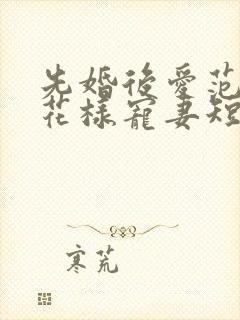 先婚後愛范
花樣寵妻短
寒荒